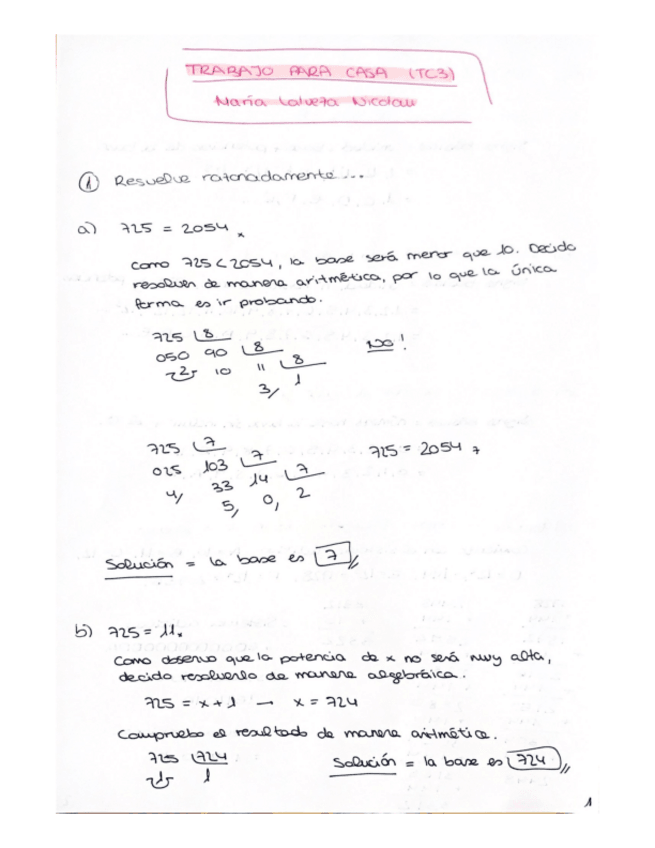 TRABAJO PARA CASA (TC3)
María Nicolau
① Resuelve razonadamente...
a) 725 = 2054 x
como 725 < 2054, la base será menor que 10. Decido
resolver de manera aritmética, por lo que la única
forma es ir probando.
725 8
050 90 8 NO!
2 10 11 8
3, 1
725 7
025 103 7 725 = 2054 7
4, 33 14 7
5, 0, 2
Solución = la base es 7
b) 725 = 11x
Como observo que la potencia de x no será muy alta,
decido resolverlo de manera algebráica.
725 = x + 1 → x = 724
Compruebo el resultado de manera aritmética.
725 724
1 1
Solución = la base es 724
1